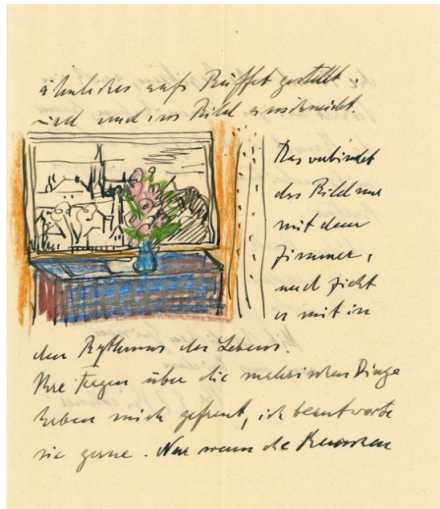 ähnliches aufs Büffet gestellt.
und ins Bild
Das verbindet
das Bild nur
mit dem
Zimmer,
und zieht
es mit in
den Rythmus des Lebens.
Ihre Fragen über die malerischen Dinge
haben mich gefreut, ich beantworte
sie gerne. Nur wenn die Menschen